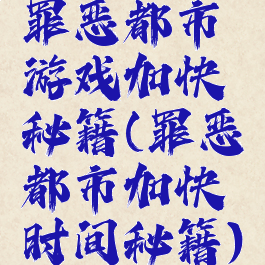 罪恶都市
游戏加快
秘籍(罪恶
都市加快
时间秘籍)